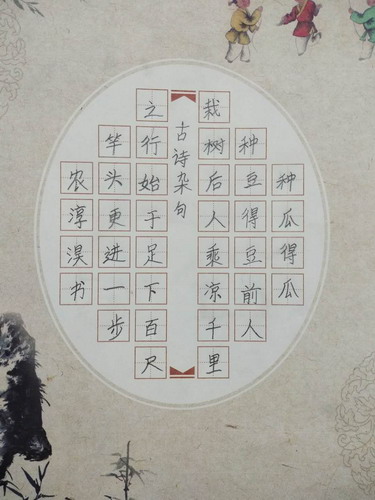 种瓜得瓜
种豆得豆前人
栽树后人乘凉千里
古诗杂句
之行始于足下百尺
竿头更进一步
农淳淏书